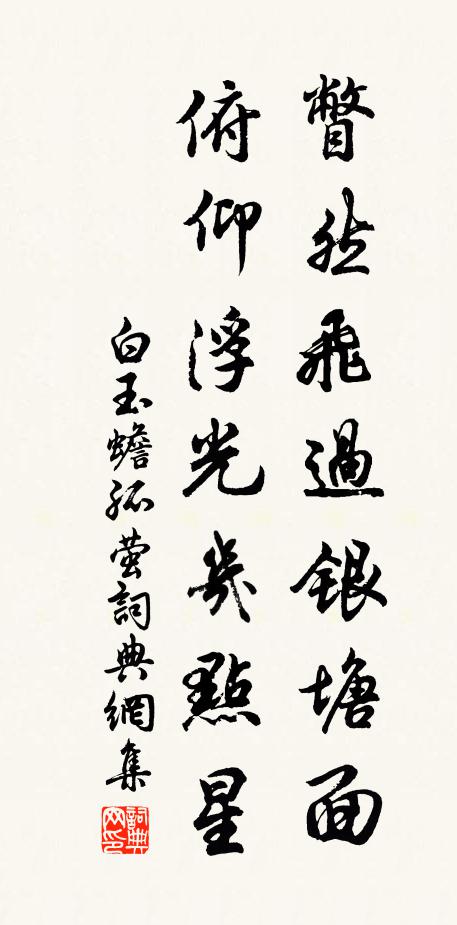 瞥然飛過銀塘面
俯仰浮光幾點星
白玉蟾孤螢詞典網集
詞典網印